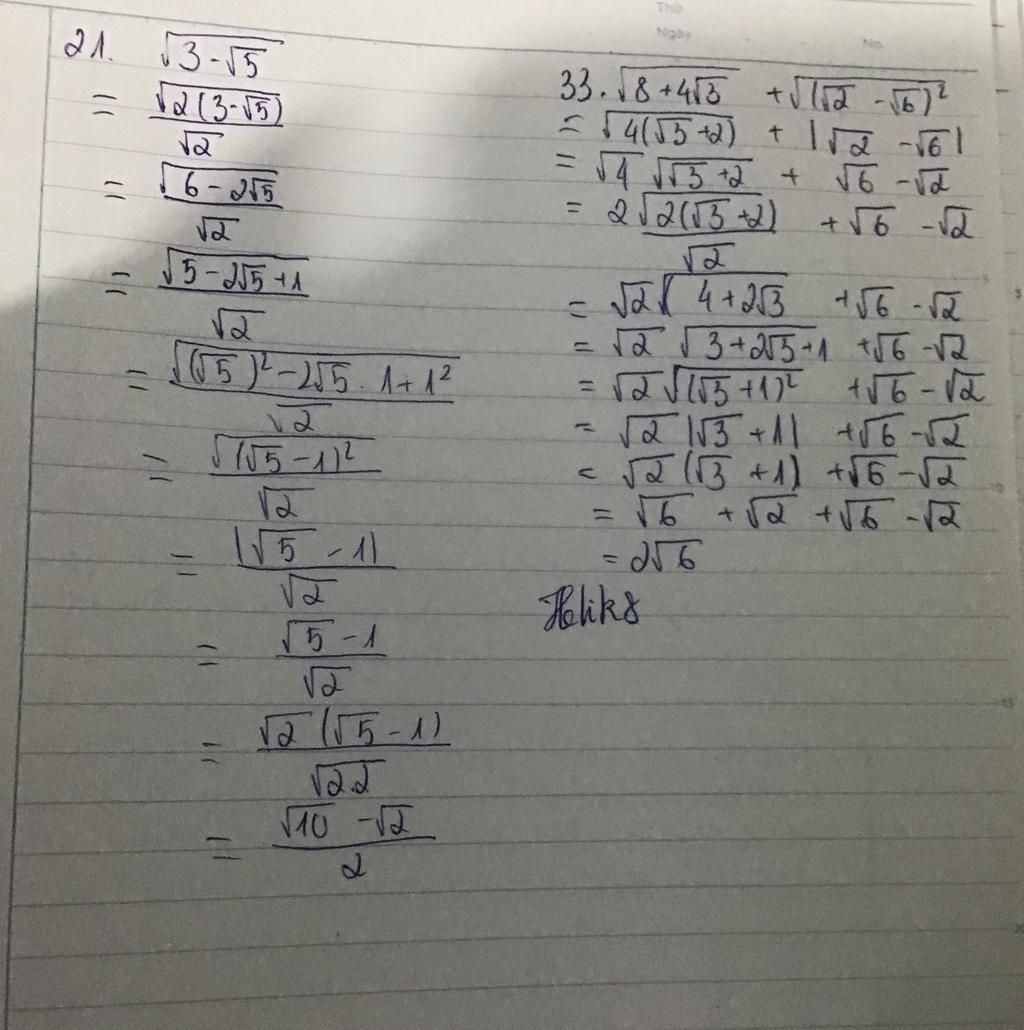 Thứ
Ngày
No.
21. √(3-√5)
= √(2(3-√5))/√2
= √(6-2√5)/√2
= √(5-2√5+1)/√2
= √((√5)²-2√5.1+1²)/√2
= √((√5-1)²)/√2
= |√5-1|/√2
= (√5-1)/√2
= √2(√5-1)/√(2.2)
= (√10-√2)/2
33. √(8+4√3) + √((√2-√6)²)
= √(4(√3+2)) + |√2-√6|
= √4 √(√3+2) + √6-√2
= 2√(2(√3+2))/√2 + √6-√2
= √2√(4+2√3) + √6-√2
= √2 √(3+2√3+1) + √6-√2
= √2√((√3+1)²) + √6-√2
= √2 |√3+1| + √6-√2
= √2 (√3+1) + √6-√2
= √6 + √2 + √6-√2
= 2√6